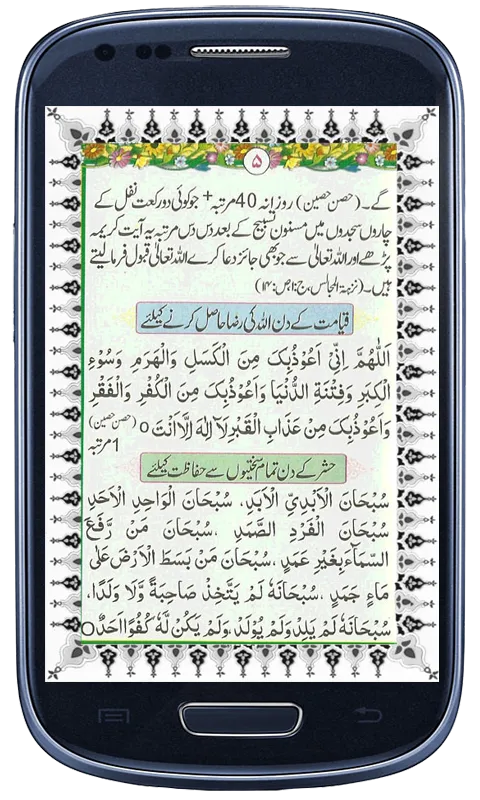 ۵
گے۔ (حصن حصین) روزانہ 40 مرتبہ + جو کوئی دو رکعت نفل کے
چاروں سجدوں میں مسنون تسبیح کے بعد دس دس مرتبہ یہ آیت کریمہ
پڑھے اور اللہ تعالیٰ سے جو بھی جائز دعا کرے اللہ تعالیٰ قبول فرما لیتے
ہیں۔ (نزہۃ المجالس، ج:۱ص:۱۴)
قیامت کے دن اللہ کی رضا حاصل کرنے کیلئے
اَللّٰهُمَّ اِنِّیْ اَعُوْذُبِکَ مِنَ الْکَسَلِ وَالْهَرَمِ وَسُوْءِ
الْکِبَرِ وَفِتْنَةِ الدُّنْیَا وَاَعُوْذُبِکَ مِنَ الْکُفْرِ وَالْفَقْرِ
وَاَعُوْذُبِکَ مِنْ عَذَابِ الْقَبْرِ لَآ اِلٰهَ اِلَّا اَنْتَ ○ (حصن حصین)
1 مرتبہ
حشر کے دن تمام سختیوں سے حفاظت کیلئے
سُبْحَانَ الْاَبَدِیِّ الْاَبَدِ، سُبْحَانَ الْوَاحِدِ الْاَحَدِ
سُبْحَانَ الْفَرْدِ الصَّمَدِ، سُبْحَانَ مَنْ رَّفَعَ
السَّمَآءَ بِغَیْرِ عَمَدٍ، سُبْحَانَ مَنْ بَسَطَ الْاَرْضَ عَلٰی
مَاءٍ جَمَدٍ، سُبْحَانَهٗ لَمْ یَتَّخِذْ صَاحِبَةً وَّلَا وَلَدًا،
سُبْحَانَهٗ لَمْ یَلِدْ وَلَمْ یُوْلَدْ، وَلَمْ یَکُنْ لَّهٗ کُفُوًا اَحَدٌ ○